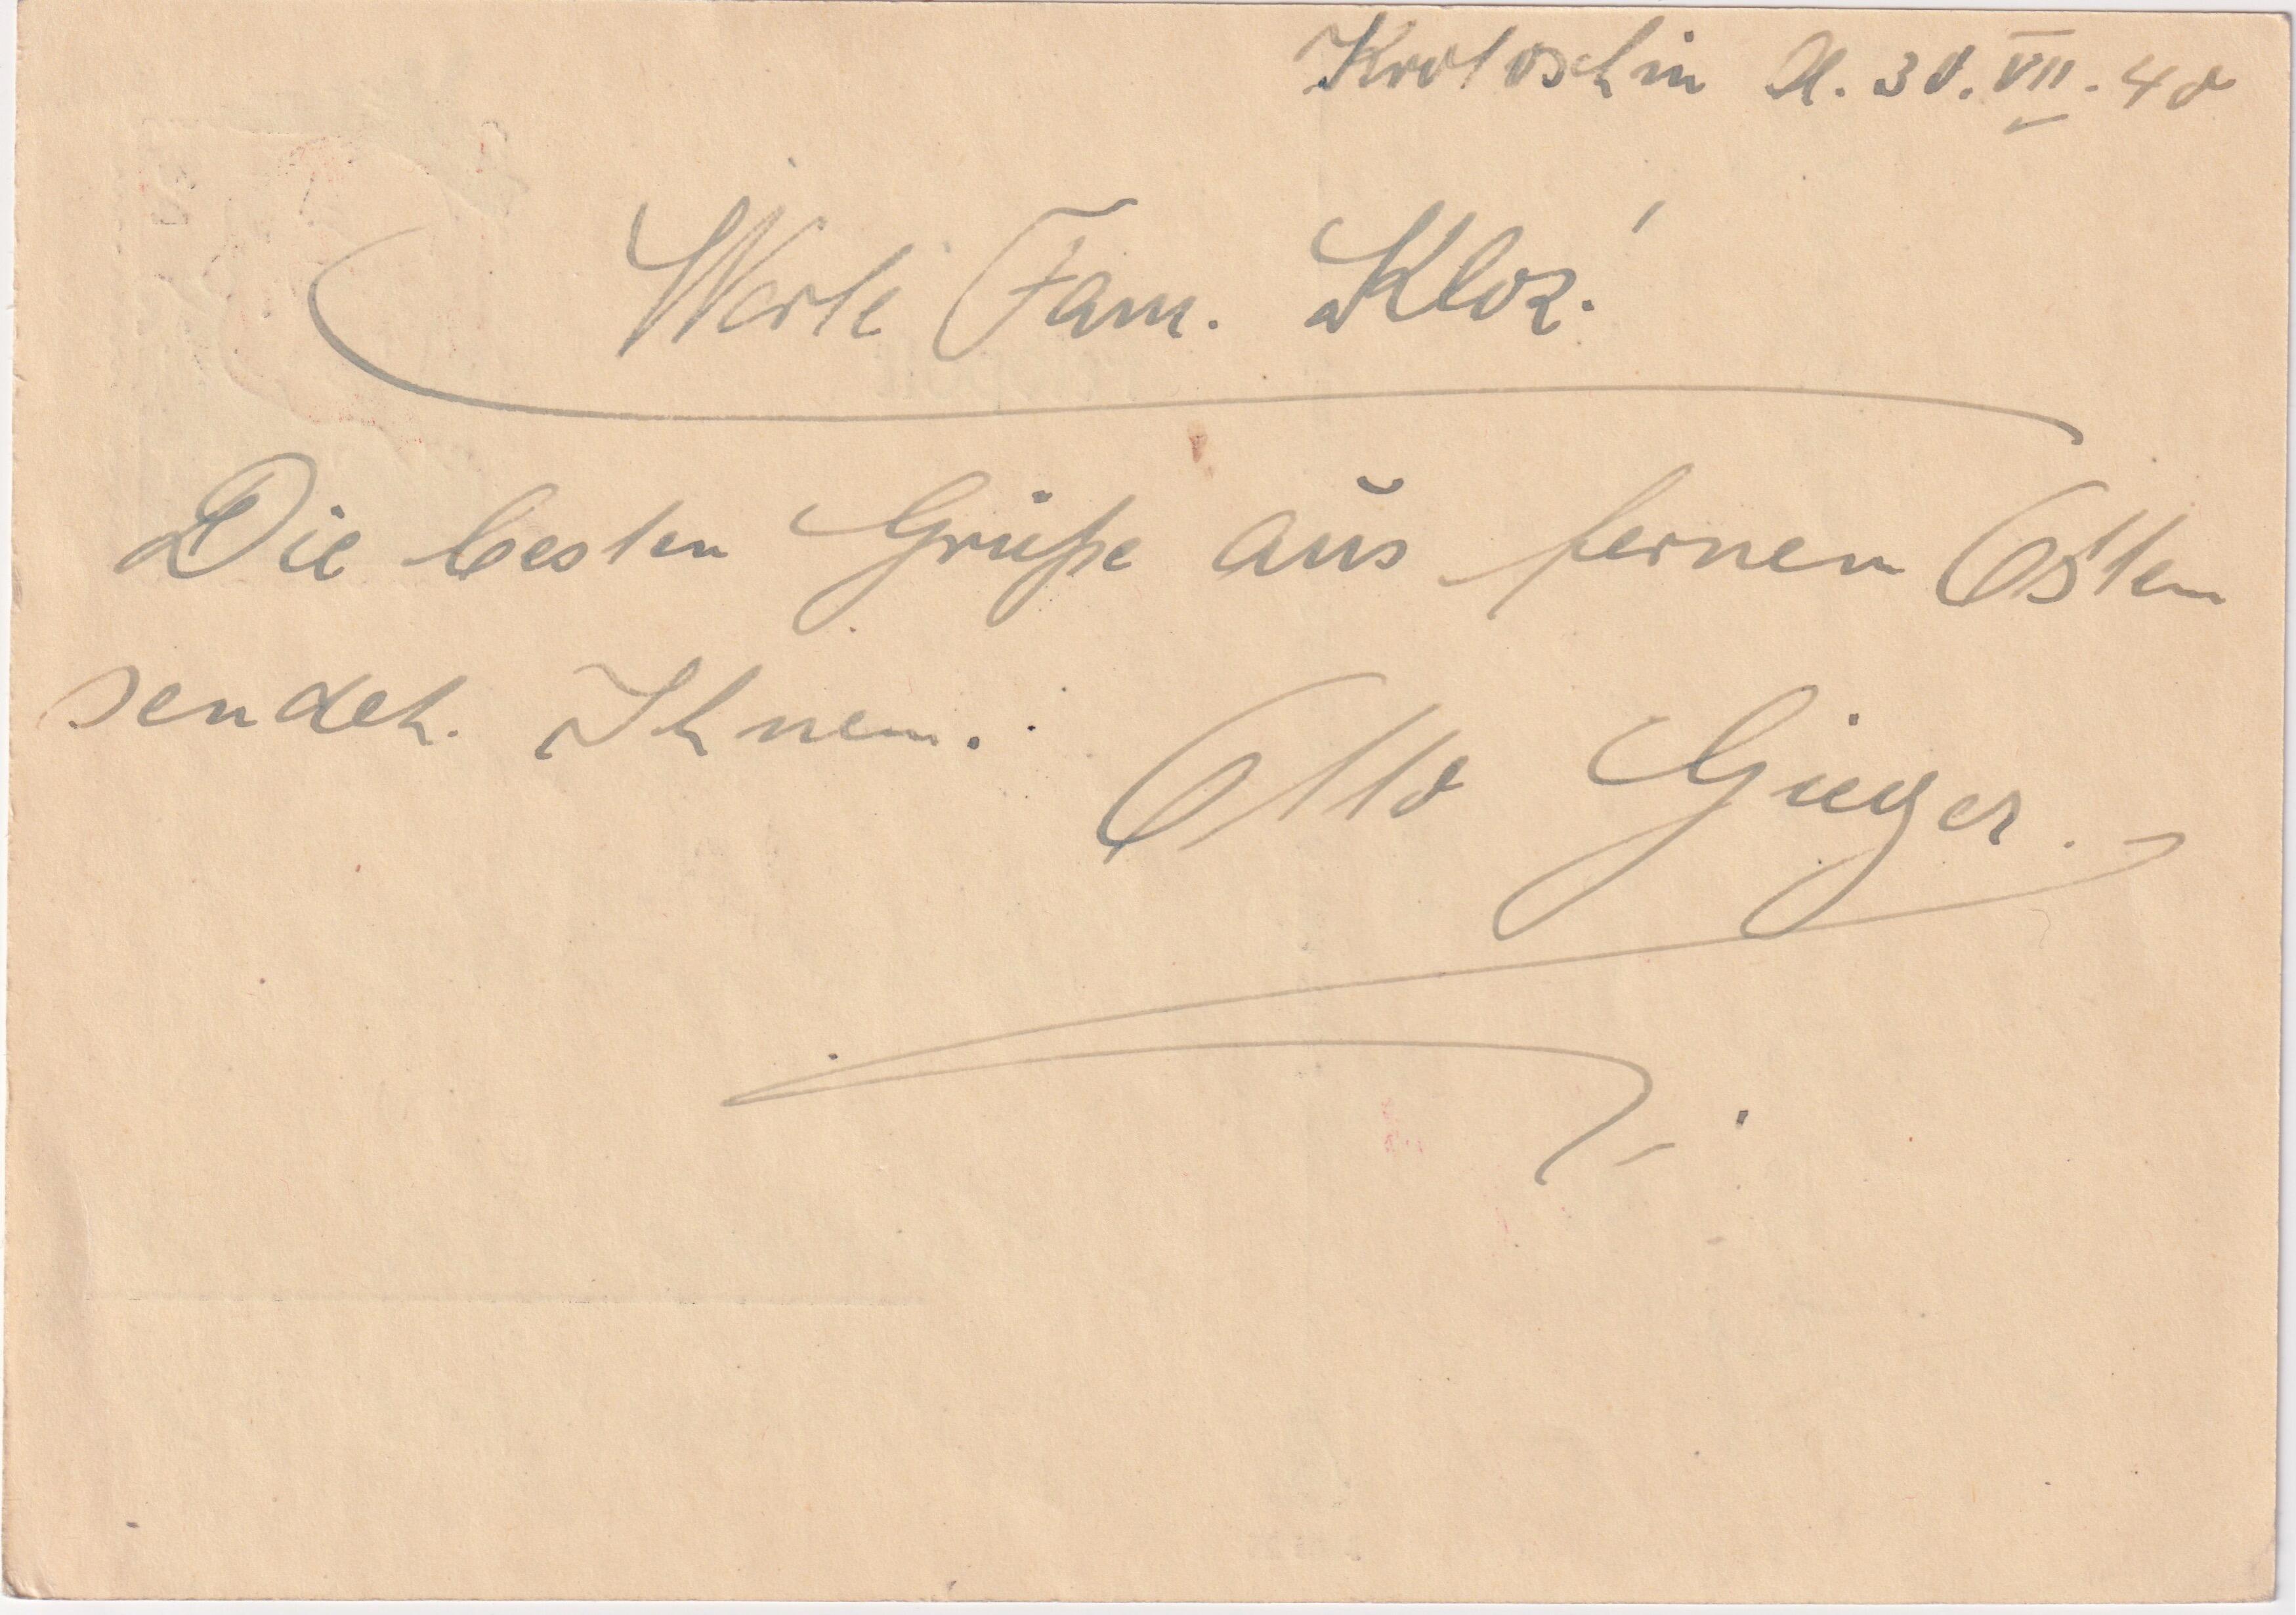 Krotoschin d. 30. VII. 40
Werte Fam. Kloz!
Die besten Grüße aus fernen Osten
sendet. Ihnen.
Otto Gieger.